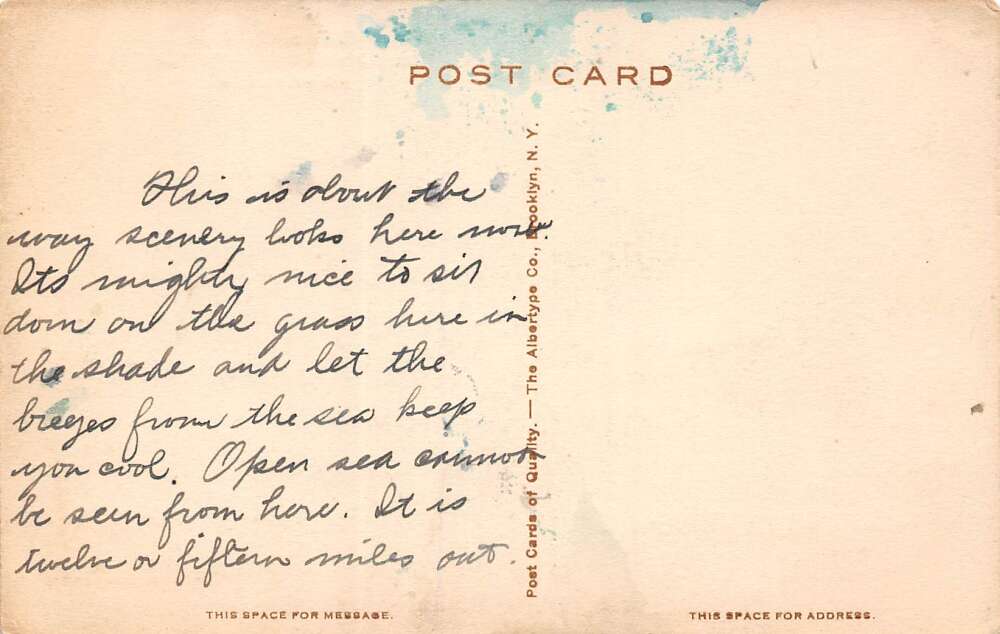 POST CARD
This is about the
way scenery looks here now.
Its mighty nice to sit
down on the grass here in
the shade and let the
breezes from the sea keep
you cool. Open sea cannot
be seen from here. It is
twelve or fifteen miles out.
Post Cards of Quality. — The Albertype Co., Brooklyn, N. Y.
THIS SPACE FOR MESSAGE.
THIS SPACE FOR ADDRESS.